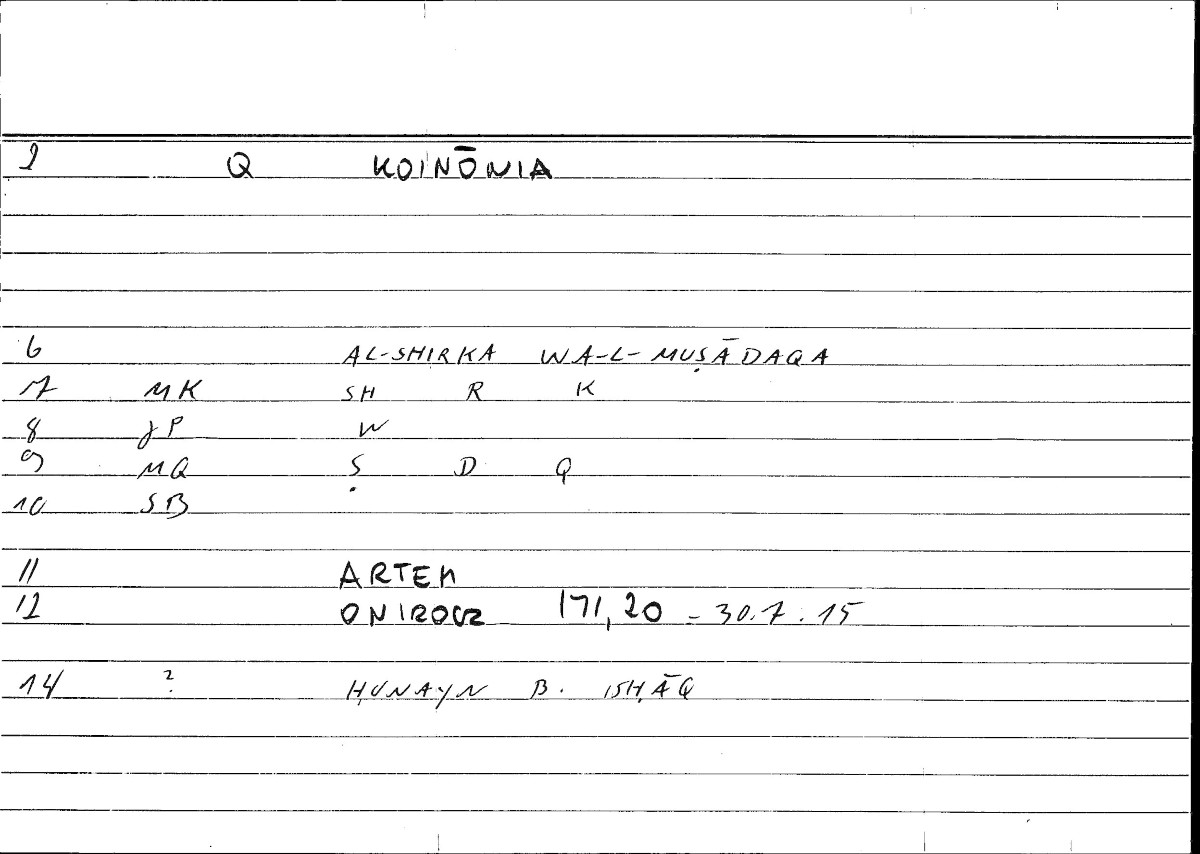 2 Q KOINŌNIA
6 AL-SHIRKA WA-L-MUṢĀDAQA
7 MK SH R K
8 JP W
9 MQ Ṣ D Q
10 SB
11 ARTEM
12 ONIROCR 171,20 - 30.7.15
14 ? ḤUNAYN B. ISḤĀQ